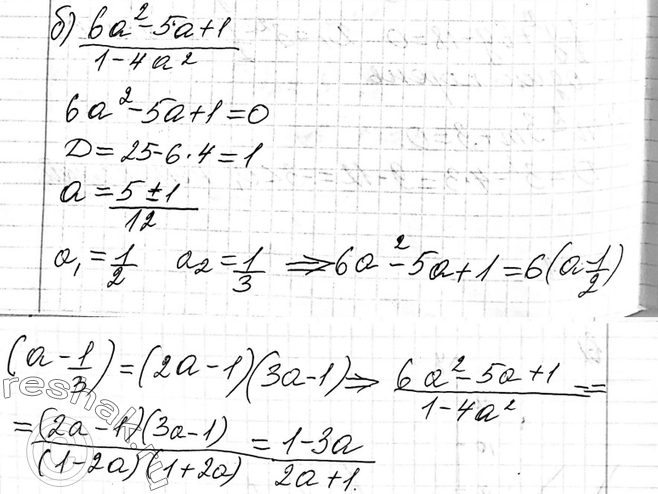 б) (6a²-5a+1)/(1-4a²)
6a²-5a+1=0
D=25-6·4=1
a=(5±1)/12
a₁=1/2 a₂=1/3 ⇒ 6a²-5a+1=6(a-1/2)
(a-1/3)=(2a-1)(3a-1)⇒ (6a²-5a+1)/(1-4a²)==
=((2a-1)(3a-1))/((1-2a)(1+2a))=(1-3a)/(2a+1)